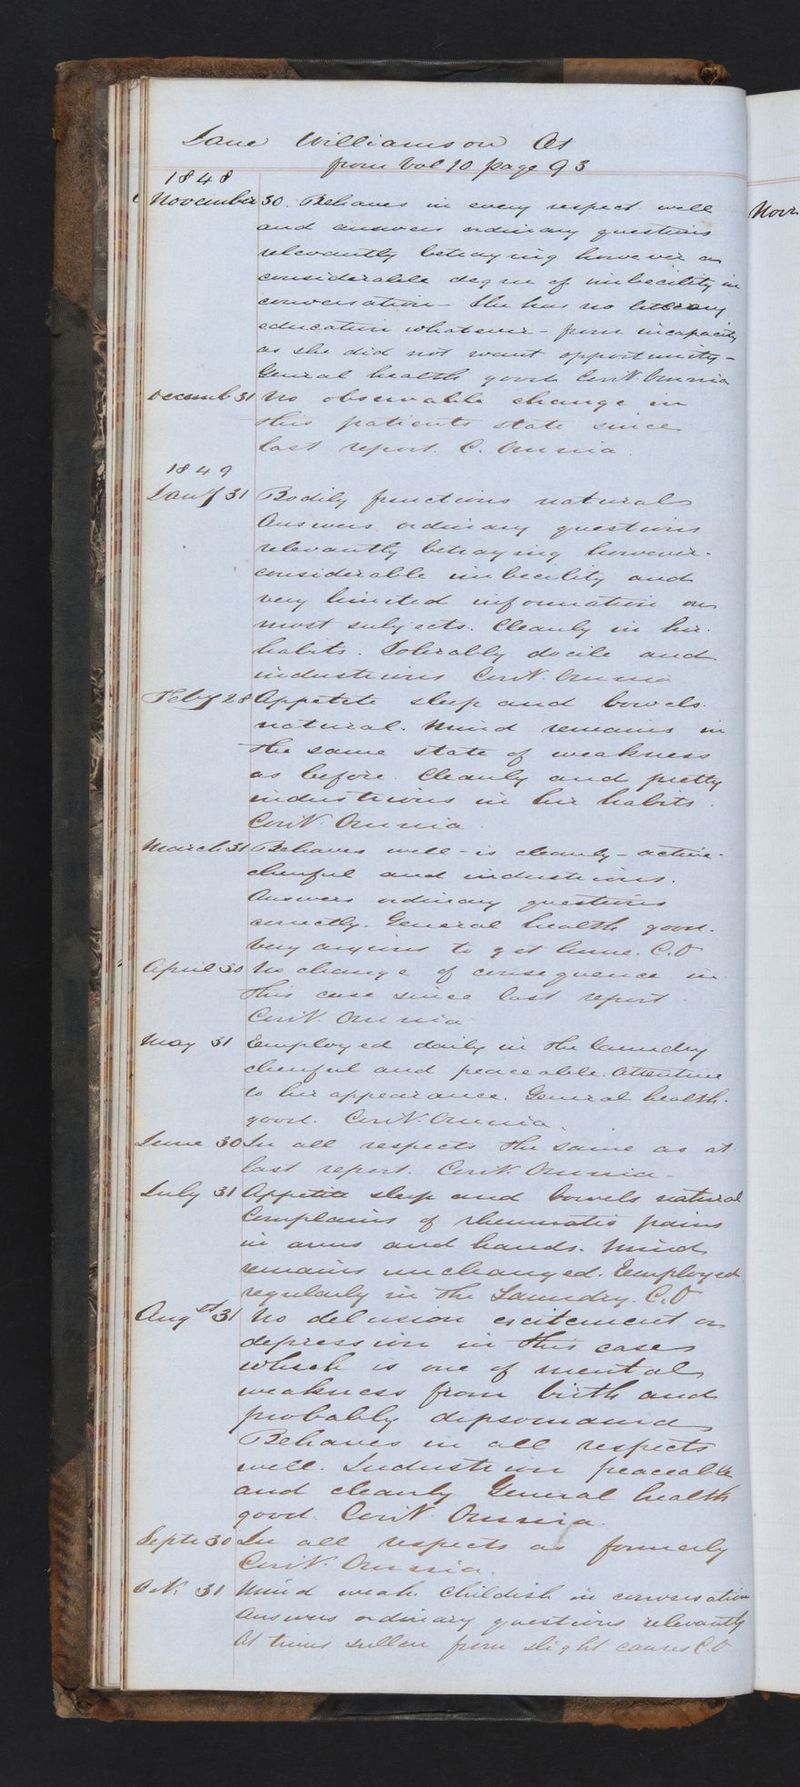 Jane Williamson At
from Vol 10 page 93
1848
November 30. Behaves in every respect well
and answers ordinary questions
relevantly betraying however a
considerable degree of imbecility in
conversation - She has no literary
education whatever - from incapacity
as she did not want opportunity -
General health good Cont. Omnia
Decemb 31 No observable change in
this patients state since
last report. C. Omnia
1849
Jany 31 Bodily functions natural
Answers ordinary questions
relevantly betraying however
considerable imbecility and
very limited information on
most subjects. Cleanly in her
habits. Tolerably docile and
industrious Cont. Omnia
Feby 28 Appetite sleep and bowels
natural. Mind remains in
the same state of weakness
as before. Cleanly and pretty
industrious in her habits.
Cont. Omnia
March 31 Behaves well - is cleanly - active -
cheerful and industrious.
Answers ordinary questions
correctly. General health good.
Very anxious to get home. C.O
April 30 No change of consequence in
this case since last report.
Cont. Omnia
May 31 Employed daily in the laundry
cheerful and peaceable. Attentive
to her appearance. General health
good. Cont. Omnia.
June 30 In all respects the same as at
last report. Cont. Omnia -
July 31 Appetite sleep and bowels natural
Complains of rheumatic pains
in arms and hands. Mind
remains unchanged. Employed
regularly in the Laundry. C.O
Augst 31 No delusion excitement or
depression in this case
which is one of mental
weakness from birth and
probably dipsomania
Behaves in all respects
well. Industrious peaceable
and cleanly General health
good. Cont. Omnia.
Septr 30 In all respects as formerly
Cont. Omnia.
Oct. 31 Mind weak. Childish in conversation
Answers ordinary questions relevantly
At times sullen from slight causes C.O
Novr